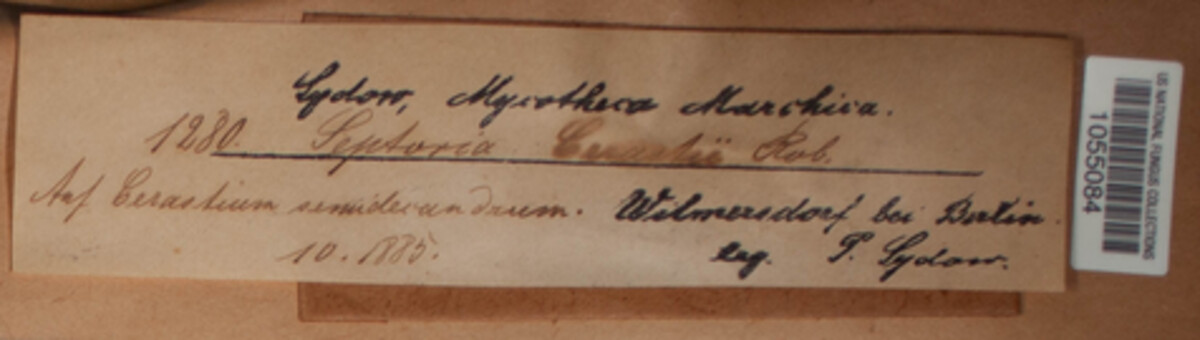 Sydow, Mycotheca Marchica.
1280. Septoria Cerastii Rob.
Auf Cerastium semidecandrum. Wilmersdorf bei Berlin.
10. 1885. leg. P. Sydow.
US NATIONAL FUNGUS COLLECTIONS
1055084